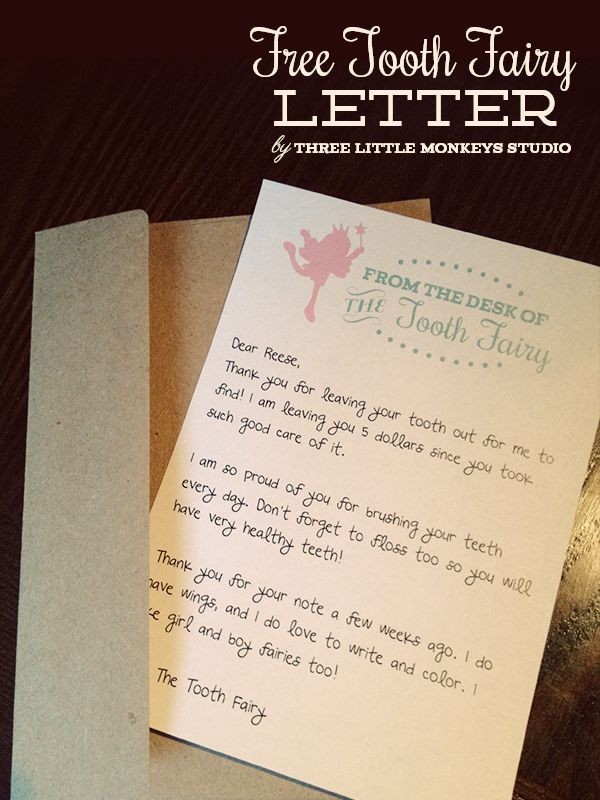 Free Tooth Fairy
LETTER
by THREE LITTLE MONKEYS STUDIO
FROM THE DESK OF
THE Tooth Fairy
Dear Reese,
Thank you for leaving your tooth out for me to
find! I am leaving you 5 dollars since you took
such good care of it.
I am so proud of you for brushing your teeth
every day. Don't forget to floss too so you will
have very healthy teeth!
Thank you for your note a few weeks ago. I do
have wings, and I do love to write and color. I
girl and boy fairies too!
The Tooth Fairy